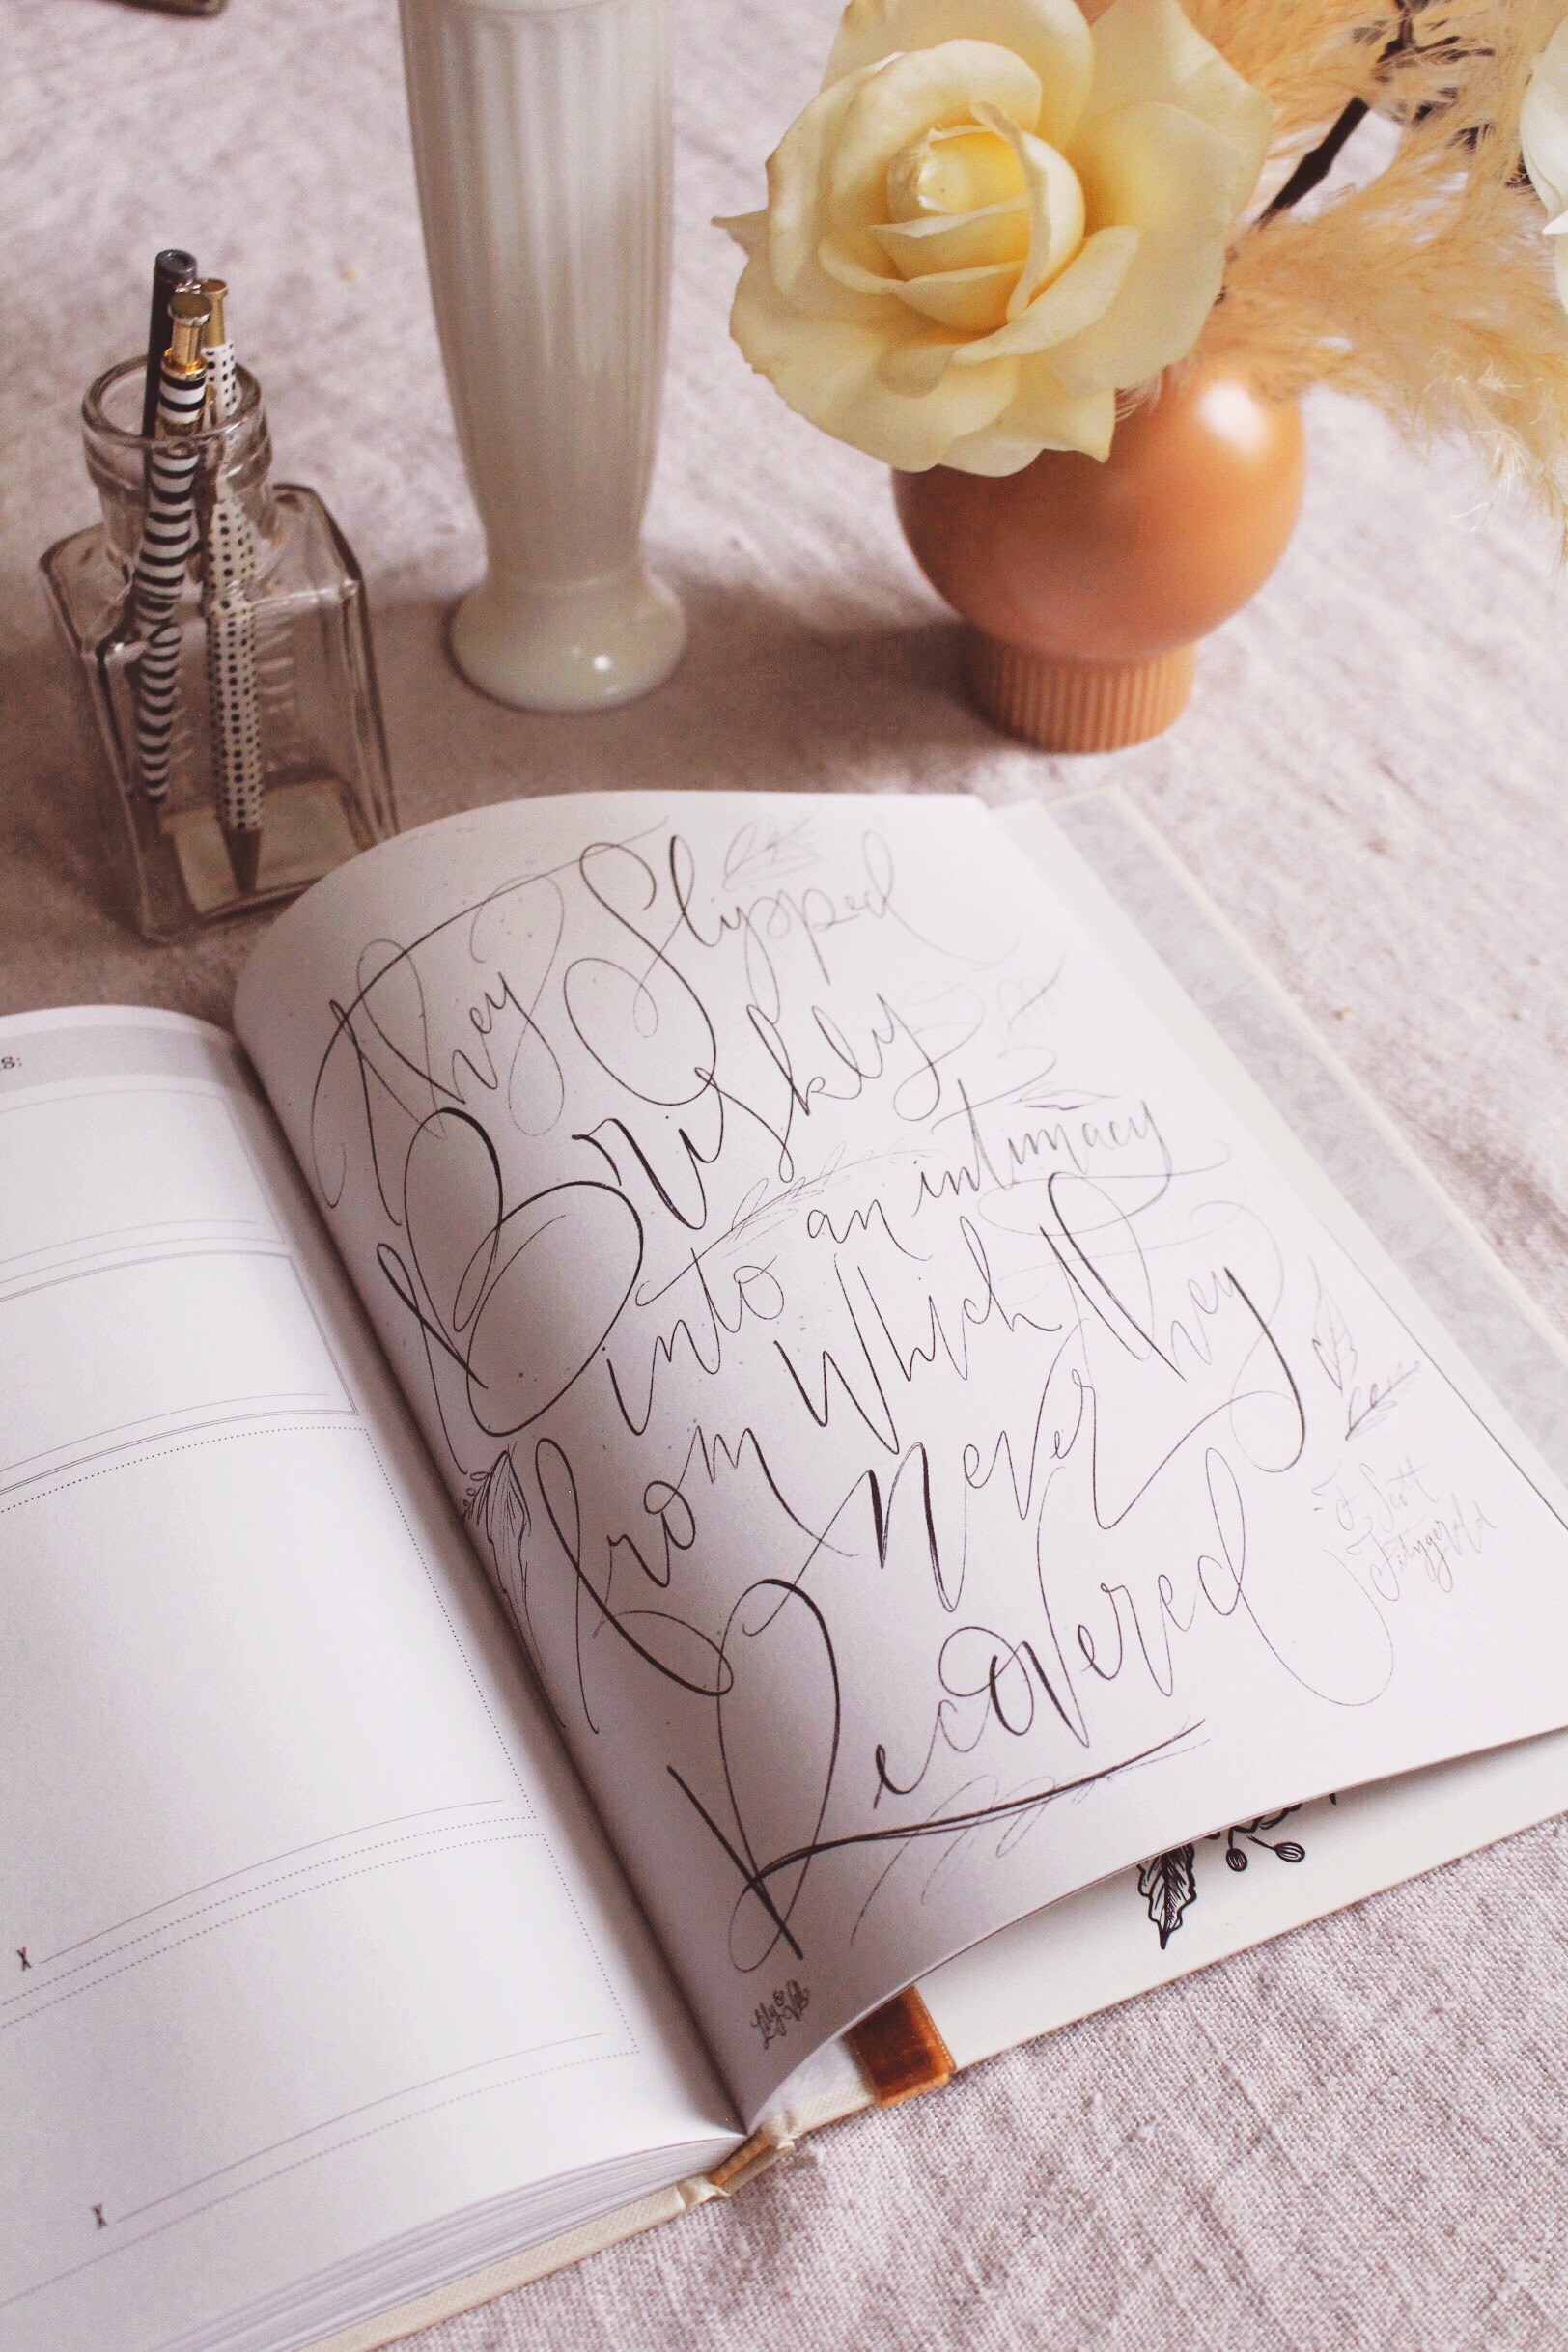 s:
X
X
They Slipped
Briskly
into an intimacy
from Which They
never
Recovered
F Scott
Fitzgerald
Lily & Val